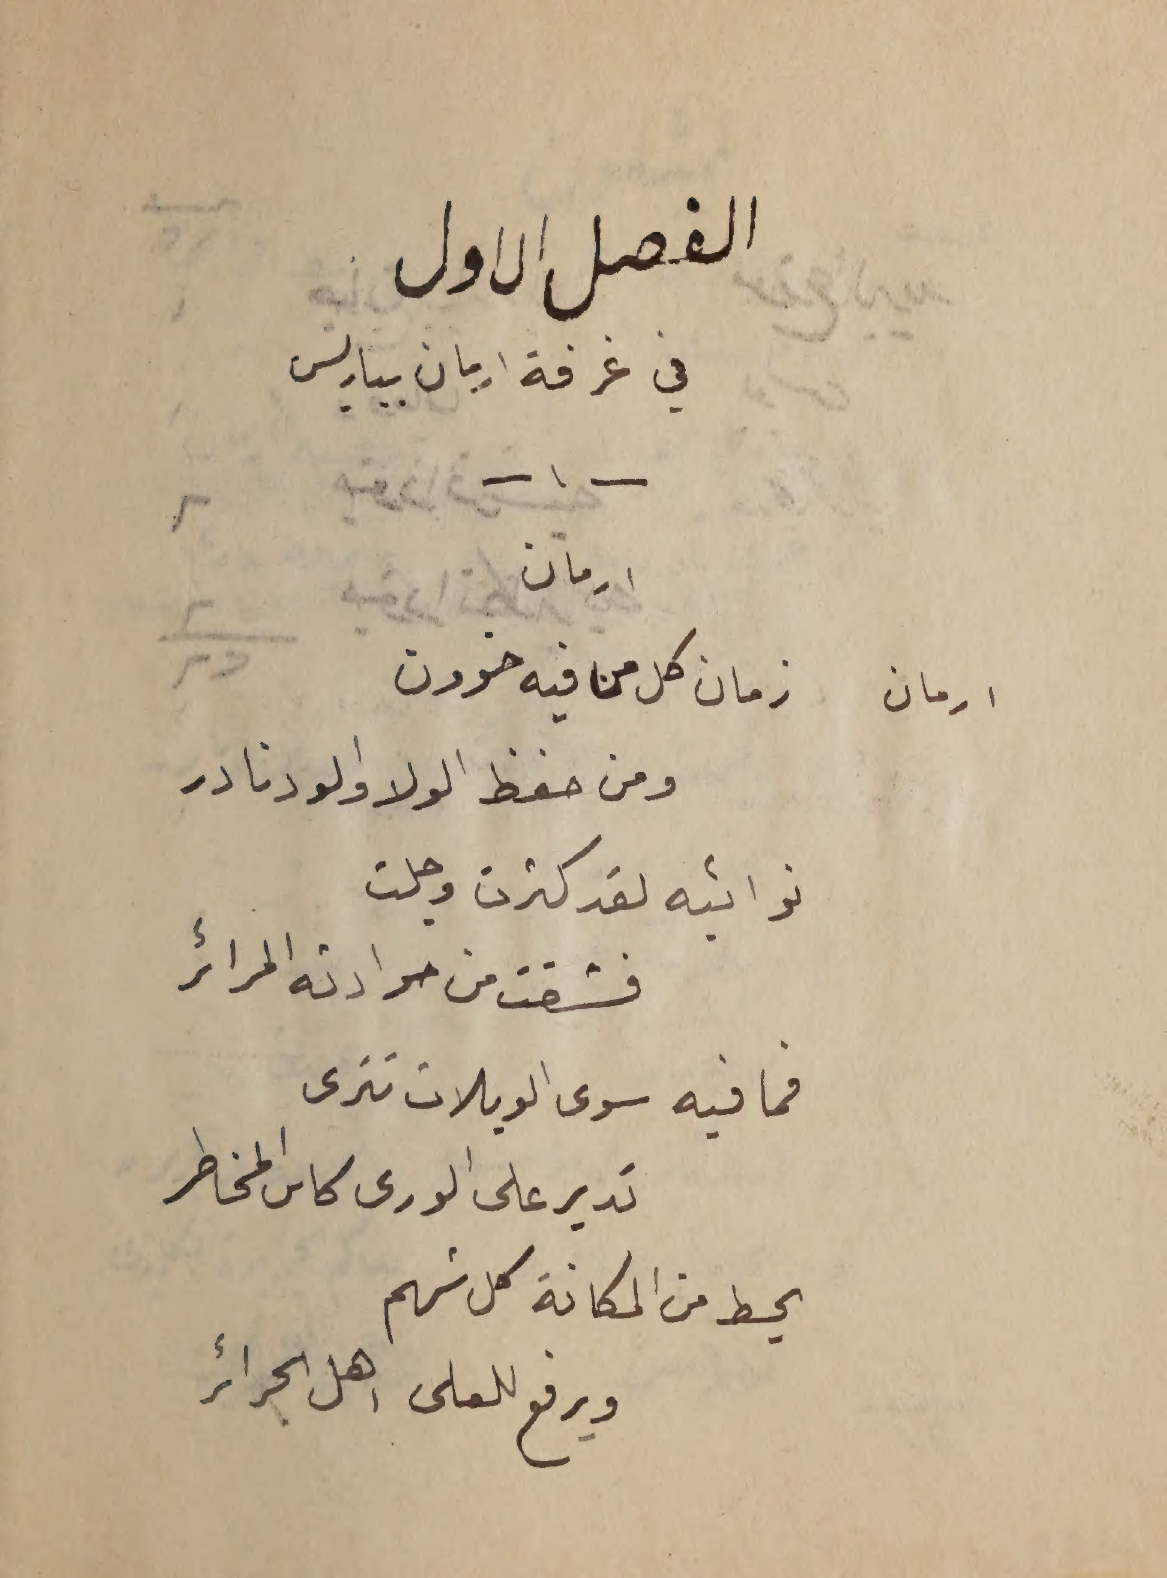 الفصل الاول
في غرفة ارمان بباريس
— ١ —
ارمان
ارمان زمان كل من فيه خوون
ومن حفظ الولا والود نادر
نوائبه لقد كثرت وجلت
فشقت من حوادثه المرائر
فما فيه سوى الويلات تترى
تدير على الورى كاس المخاطر
يحط من المكانة كل شهم
ويرفع للعلى اهل الجرائر